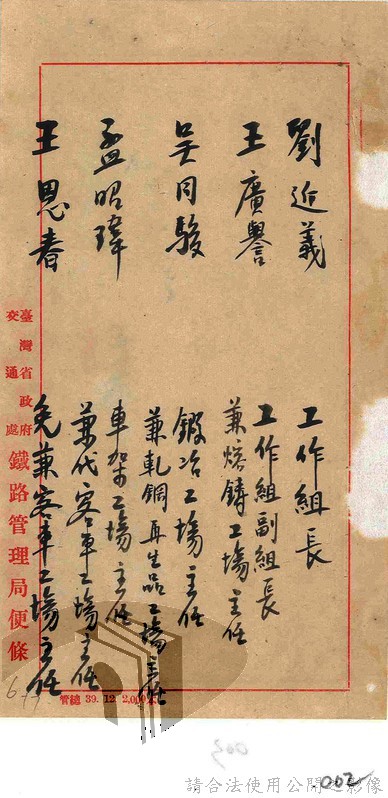 劉近義
工作組長
王廣譽
工作組副組長
兼熔鑄工場主任
吴同駿
鍛冶工場主任
兼軋鋼再生品工場主任
孟昭瑋
車架工場主任
兼代客車工場主任
王恩春
免兼客車工場主任
臺灣省政府
交通處
鐵路管理局便條
管總 39.12.2,000
002
請合法使用公開之影像